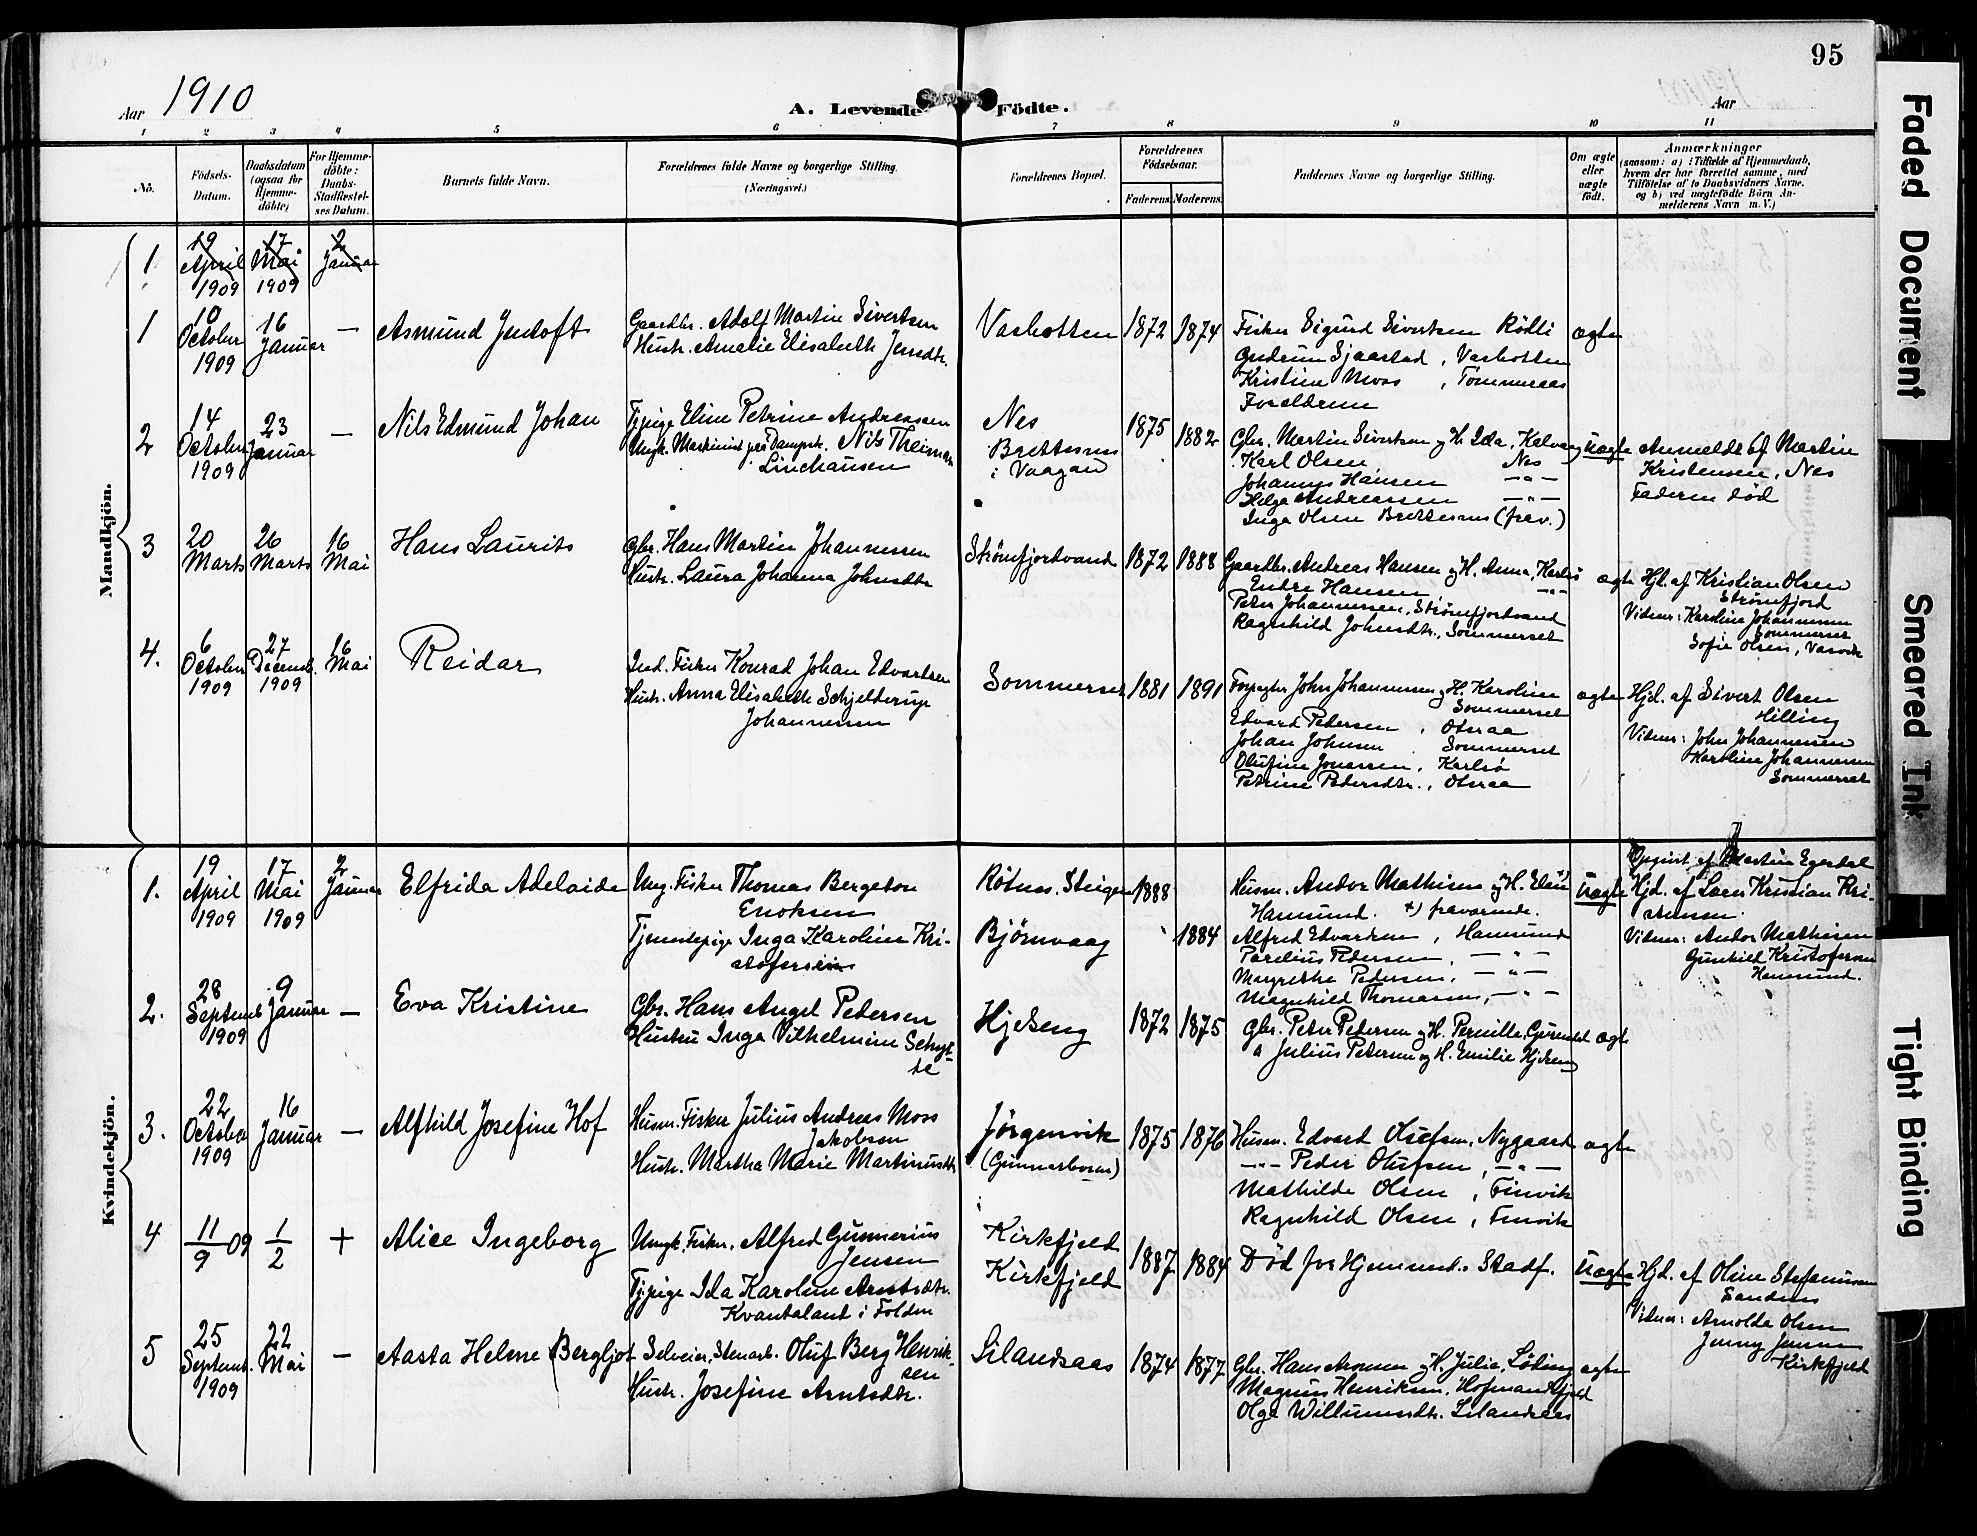 95
Aar 1910
A. Levende Födte.
Aar
1 2 3 4 5 6 7 8 9 10 11
No.
Födsels-
Datum.
Daabsdatum
(ogsaa for
Hjemme-
döbte)
For Hjemme-
döbte:
Daabs-
Stadfæstel-
ses Datum.
Barnets fulde Navn.
Forældrenes fulde Navne og borgerlige Stilling.
(Næringsvei.)
Forældrenes Bopæl.
Forældrenes
Födselsaar.
Faderens Moderens
Faddernes Navne og borgerlige Stilling.
Om ægte
eller
uægte
født.
Anmærkninger
(saasom: a) i Tilfælde af Hjemmedaab,
hvem der har forrettet samme, med
Tilföielse af to Daabsvidners Navne,
og b) ved uægtefödte Börn An-
melderens Navn m. V.)
Mandkjön.
1
19
April
1909
17
Mai
1909
2
Januar
1
10
October
1909
16
Januar
—
Asmund
Gaardbr. Adolf Martin Sivertsen
Hustr. Amalie Elisabeth Jensdtr.
Vashotten
1872 1874
Fisker Sigurd Sivertsen Rödli
Gudrun Sjaastad, Vashotten
Kristine Moss, Tömmeraas
Forældrene
ægte
2
14
October
1909
23
Januar
—
Nils Edmund Johan
Tjpige Eline Petrine Andreassen
Ungk. Maskinist paa Dampsk. Nils Theimann
Lindhausen
Nes
Brettesnes
i Vaagan
1875 1882
Gbr. Martin Sivertsen og H. Ida, Kalvaag
Karl Olsen Nes
Johannes Hansen — " —
Helga Andreassen — " —
Inga Olsen Brettesnes (frav.)
uægte
Anmeldt af Martin
Kristensen, Nes
Faderen död
3
20
Marts
26
Marts
16
Mai
Hans Laurits
Gbr. Hans Martin Johannessen
Hustr. Laura Johanna Johnsdtr
Strömfjordvand
1872 1888
Gaardbr. Andreas Hansen og H. Anna, Karlsö
Endre Hansen — " —
Peter Johannessen, Strömfjordvand
Ragnhild Johnsdtr., Sommerset
ægte
Hjd. af Kristian Olsen
Strömfjord
Vidner: Karoline Johannessen
Sommerset
Sofie Olsen, Vasvik
4.
6
October
1909
27
Decemb.
1909
16
Mai
Reidar
Ind. Fisker Konrad Johan Edvardsen
Hustr. Anna Elisabeth Schjelderup
Johannessen
Sommerset
1881 1891
Forpagter John Johannessen og H. Karoline
Sommerset
Edvard Pedersen, Otraa
Johan Johnsen Sommerset
Olufine Jonassen, Karlsö
Petrine Pedersdtr., Otraa
ægte
Hjd. af Sivert Olsen
Helling
Vidner: John Johannessen
Karoline Johannessen
Sommerset
Kvindekjön.
1.
19
April
1909
17
Mai
1909
2
Januar
Elfrida Adelaide
Ung. Fisker Thomas Bergeton
Enoksen
Tjenestepige Inga Karoline Kri-
stofersen
Rötnes. Steigen
Björnvaag
1888
1884
Husm. Andor Mathisen og H. Elen
Hamsund. +) fraværende.
Alfred Edvardsen, Hamsund
Parelius Pedersen, — " —
Margrethe Pedersen, — " —
Magnhild Thomassen, — " —
uægte
Opgivet af Martin Egerdal
Hjd. af Lars Kristian Kri-
stensen.
Vidner: Andor Mathisen
Gunhild Kristofersen
Hamsund.
2.
28
Septemb
1909
9
Januar
—
Eva Kristine
Gbr. Hans Angel Pedersen
Hustru Inga Vilhelmine Schyt-
te
Hjelseng
1872 1875
Gbr. Peter Pedersen og H. Pernille,
" Julius Petersen og H. Emilie Hjelseng
ægte
3.
22
October
1909
16
Januar
—
Alfhild Josefine Hof
Husm. Fisker Julius Andreas Moss
Jakobsen
Hustr. Martha Marie Martinusdtr
Jörgenvik
(Gunnarbonn)
1875 1876
Husm. Edvard Olufsen, Nygaard
— " — Peder Olufsen, — " —
Mathilde Olsen, Finvik
Ragnhild Olsen, Finvik
ægte
4
11/9 09
1/2
+
Alice Ingeborg
Ungk. Fisker. Alfred Gunnerius
Jensen
Tjpige Ida Karoline Arntsdtr.
Kvantaland i Folden
Kirkfjeld
Kirkfjeld
1887 1884
Död for Hjemmed. Stadf.
uægte
Hjd. af Oline Stefanussen
Sandnes
Vidner: Arnolda Olsen
Jenny Jensen
Kirkfjeld
5
25
Septemb.
1909
22
Mai
—
Aasta Helene Bergljot
Selveier, Stenarb. Oluf Berg Henrik-
sen
Hustr. Josefine Arntsdtr.
Silandsaas
1874 1877
Gbr. Hans Monsen og H. Julia, Löding
Magnus Henriksen, Hofmandsfjeld
Olga Willumsdtr. Silandsaas
ægte
Faded Document
Smeared Ink
Tight Binding